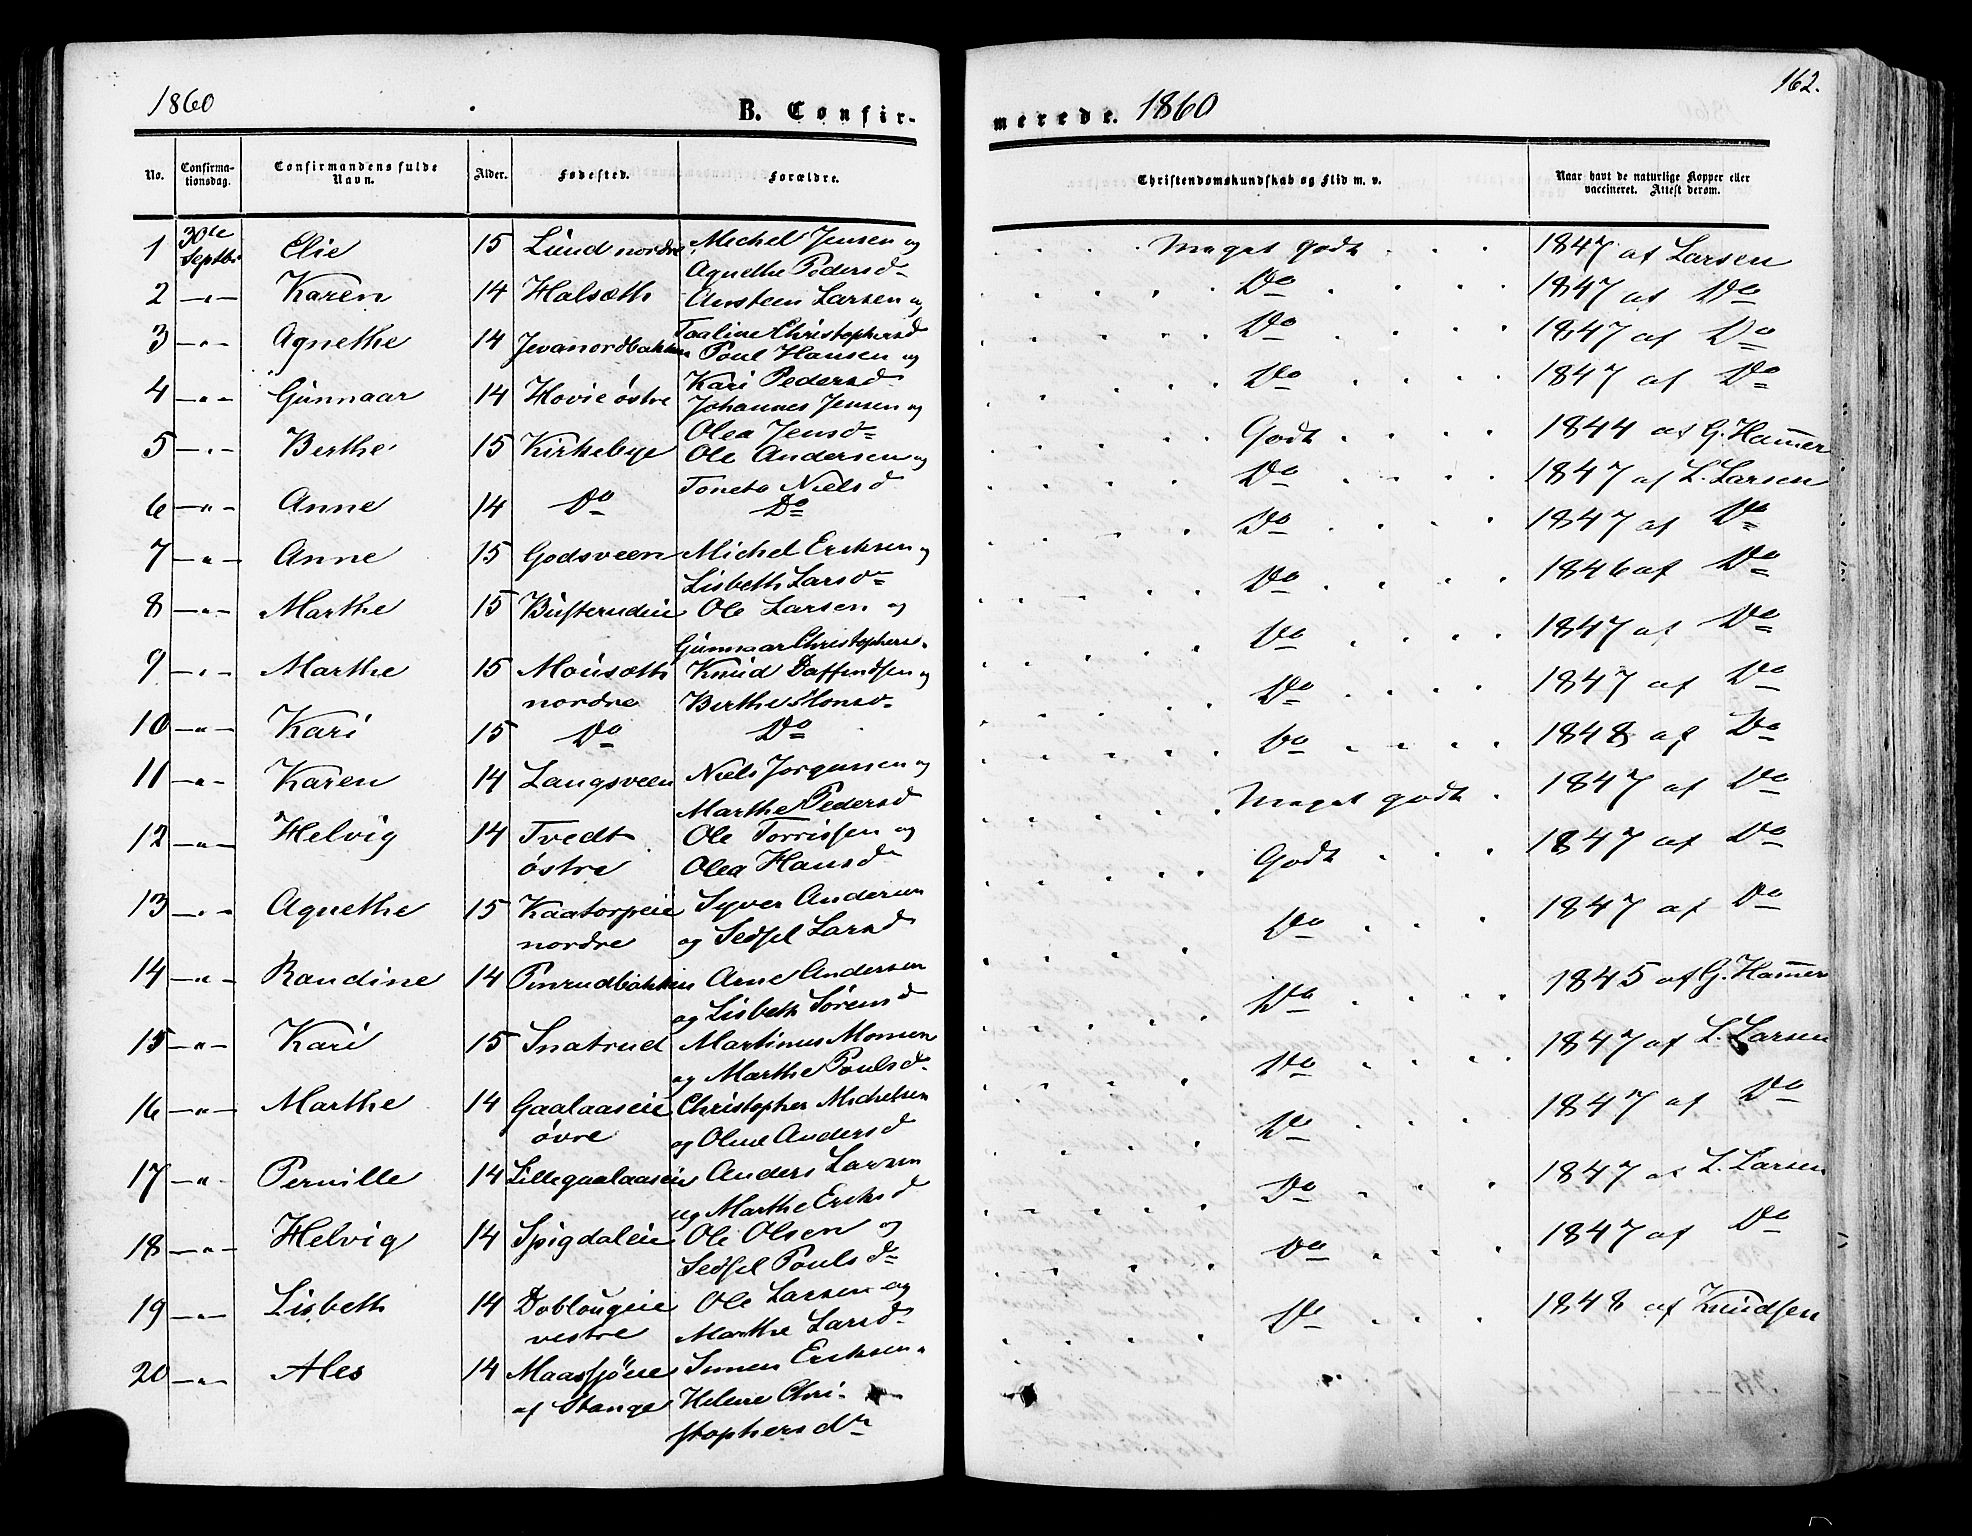 1860
B. Confir-
merede. 1860
162.
No.
Confirma-
tionsdag.
Confirmandens fulde
Navn.
Alder.
Fødested.
Forældre.
Christendomskundskab og Flid m. v.
Naar havt de naturlige Kopper eller
vaccineret. Attest derom.
1 30te Septbr Elie 15 Lund nordre Michel Jensen og Meget godt 1847 af Larsen
Agnethe Pedersd
2 —"— Karen 14 Halsæth Ansteen Larsen og Do 1847 af Do
Taaline Christophersd
3 —"— Agnethe 14 Jevanordbakken Poul Hansen og Do 1847 af Do
Kari Pedersd
4 —"— Gunnaar 14 Hovie østre Johannes Jensen og Do 1847 af Do
Olea Jensd
5 —"— Berthe 15 Kirkebye Ole Andersen og Godt 1844 af G. Hammer
Toneta Nielsd
6 —"— Anne 14 Do Do Do 1847 af L. Larsen
7 —"— Anne 15 Godsveen Michel Eriksen og Do 1847 af Do
Lisbeth Larsd
8 —"— Marthe 15 Busterudeie Ole Larsen og Do 1846 af Do
Gunnaar Christophers.
9 —"— Marthe 15 Mousæth Knud Daffindsen og Do 1847 af Do
nordre Berthe Monsd
10 —"— Kari 15 Do Do Do 1847 af Do
11 —"— Karen 14 Langsveen Niels Jorgensen og Do 1848 af Do
Marthe Pedersd
12 —"— Helvig 14 Tvedt Ole Torrissen og Meget godt 1847 af Do
østre Olea Hansd
13 —"— Agnethe 15 Kaatorpeie Syver Andersen Godt 1847 af Do
nordre og Sedsel Larsd
14 —"— Randine 14 Pinrudbakken Arne Andersen Do 1847 af Do
og Lisbeth Sørensd
15 —"— Kari 15 Snatrud Martinus Monsen Do 1845 af G. Hammer
og Marthe Poulsd
16 —"— Marthe 14 Gaalaaseie Christopher Michelsen Do 1847 af L. Larsen
øvre og Oline Andersd
17 —"— Pernille 14 Lillegaalaaseie Anders Larsen Do 1847 af Do
og Marthe Eriksd
18 —"— Helvig 14 Spigdaleie Ole Olsen og Do 1847 af L. Larsen
Sedsel Poulsd
19 —"— Lisbeth 14 Doblougeie Ole Larsen og Do 1847 af Do
vestre Marthe Larsd
20 —"— Ales 14 Maassjøeie Simen Eriksen Do 1848 af Knudsen
af Stange Helene Chri-
stophersd